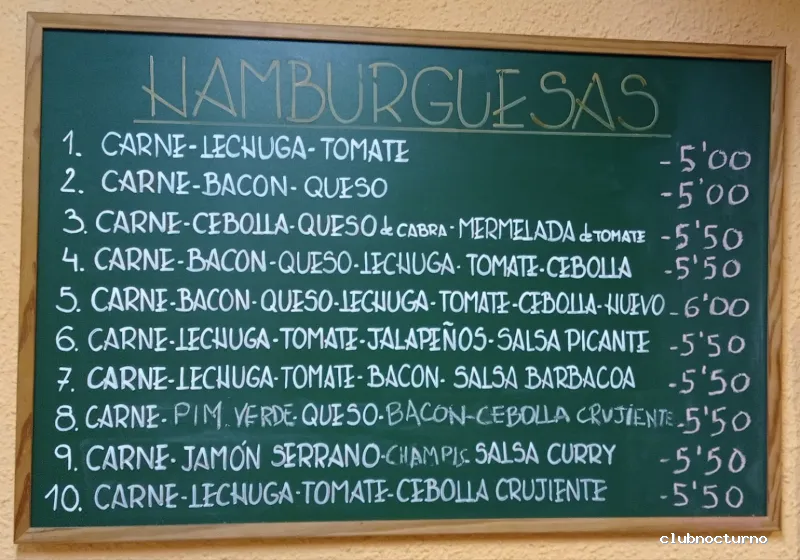 HAMBURGUESAS
1. CARNE-LECHUGA-TOMATE -5'00
2. CARNE-BACON-QUESO -5'00
3. CARNE-CEBOLLA-QUESO de CABRA-MERMELADA de TOMATE -5'50
4. CARNE-BACON-QUESO-LECHUGA-TOMATE-CEBOLLA -5'50
5. CARNE-BACON-QUESO-LECHUGA-TOMATE-CEBOLLA-HUEVO -6'00
6. CARNE-LECHUGA-TOMATE-JALAPEÑOS-SALSA PICANTE -5'50
7. CARNE-LECHUGA-TOMATE-BACON-SALSA BARBACOA -5'50
8. CARNE-PIM. VERDE-QUESO-BACON-CEBOLLA CRUJIENTE -5'50
9. CARNE-JAMÓN SERRANO-CHAMPIS-SALSA CURRY -5'50
10. CARNE-LECHUGA-TOMATE-CEBOLLA CRUJIENTE -5'50
clubnocturno